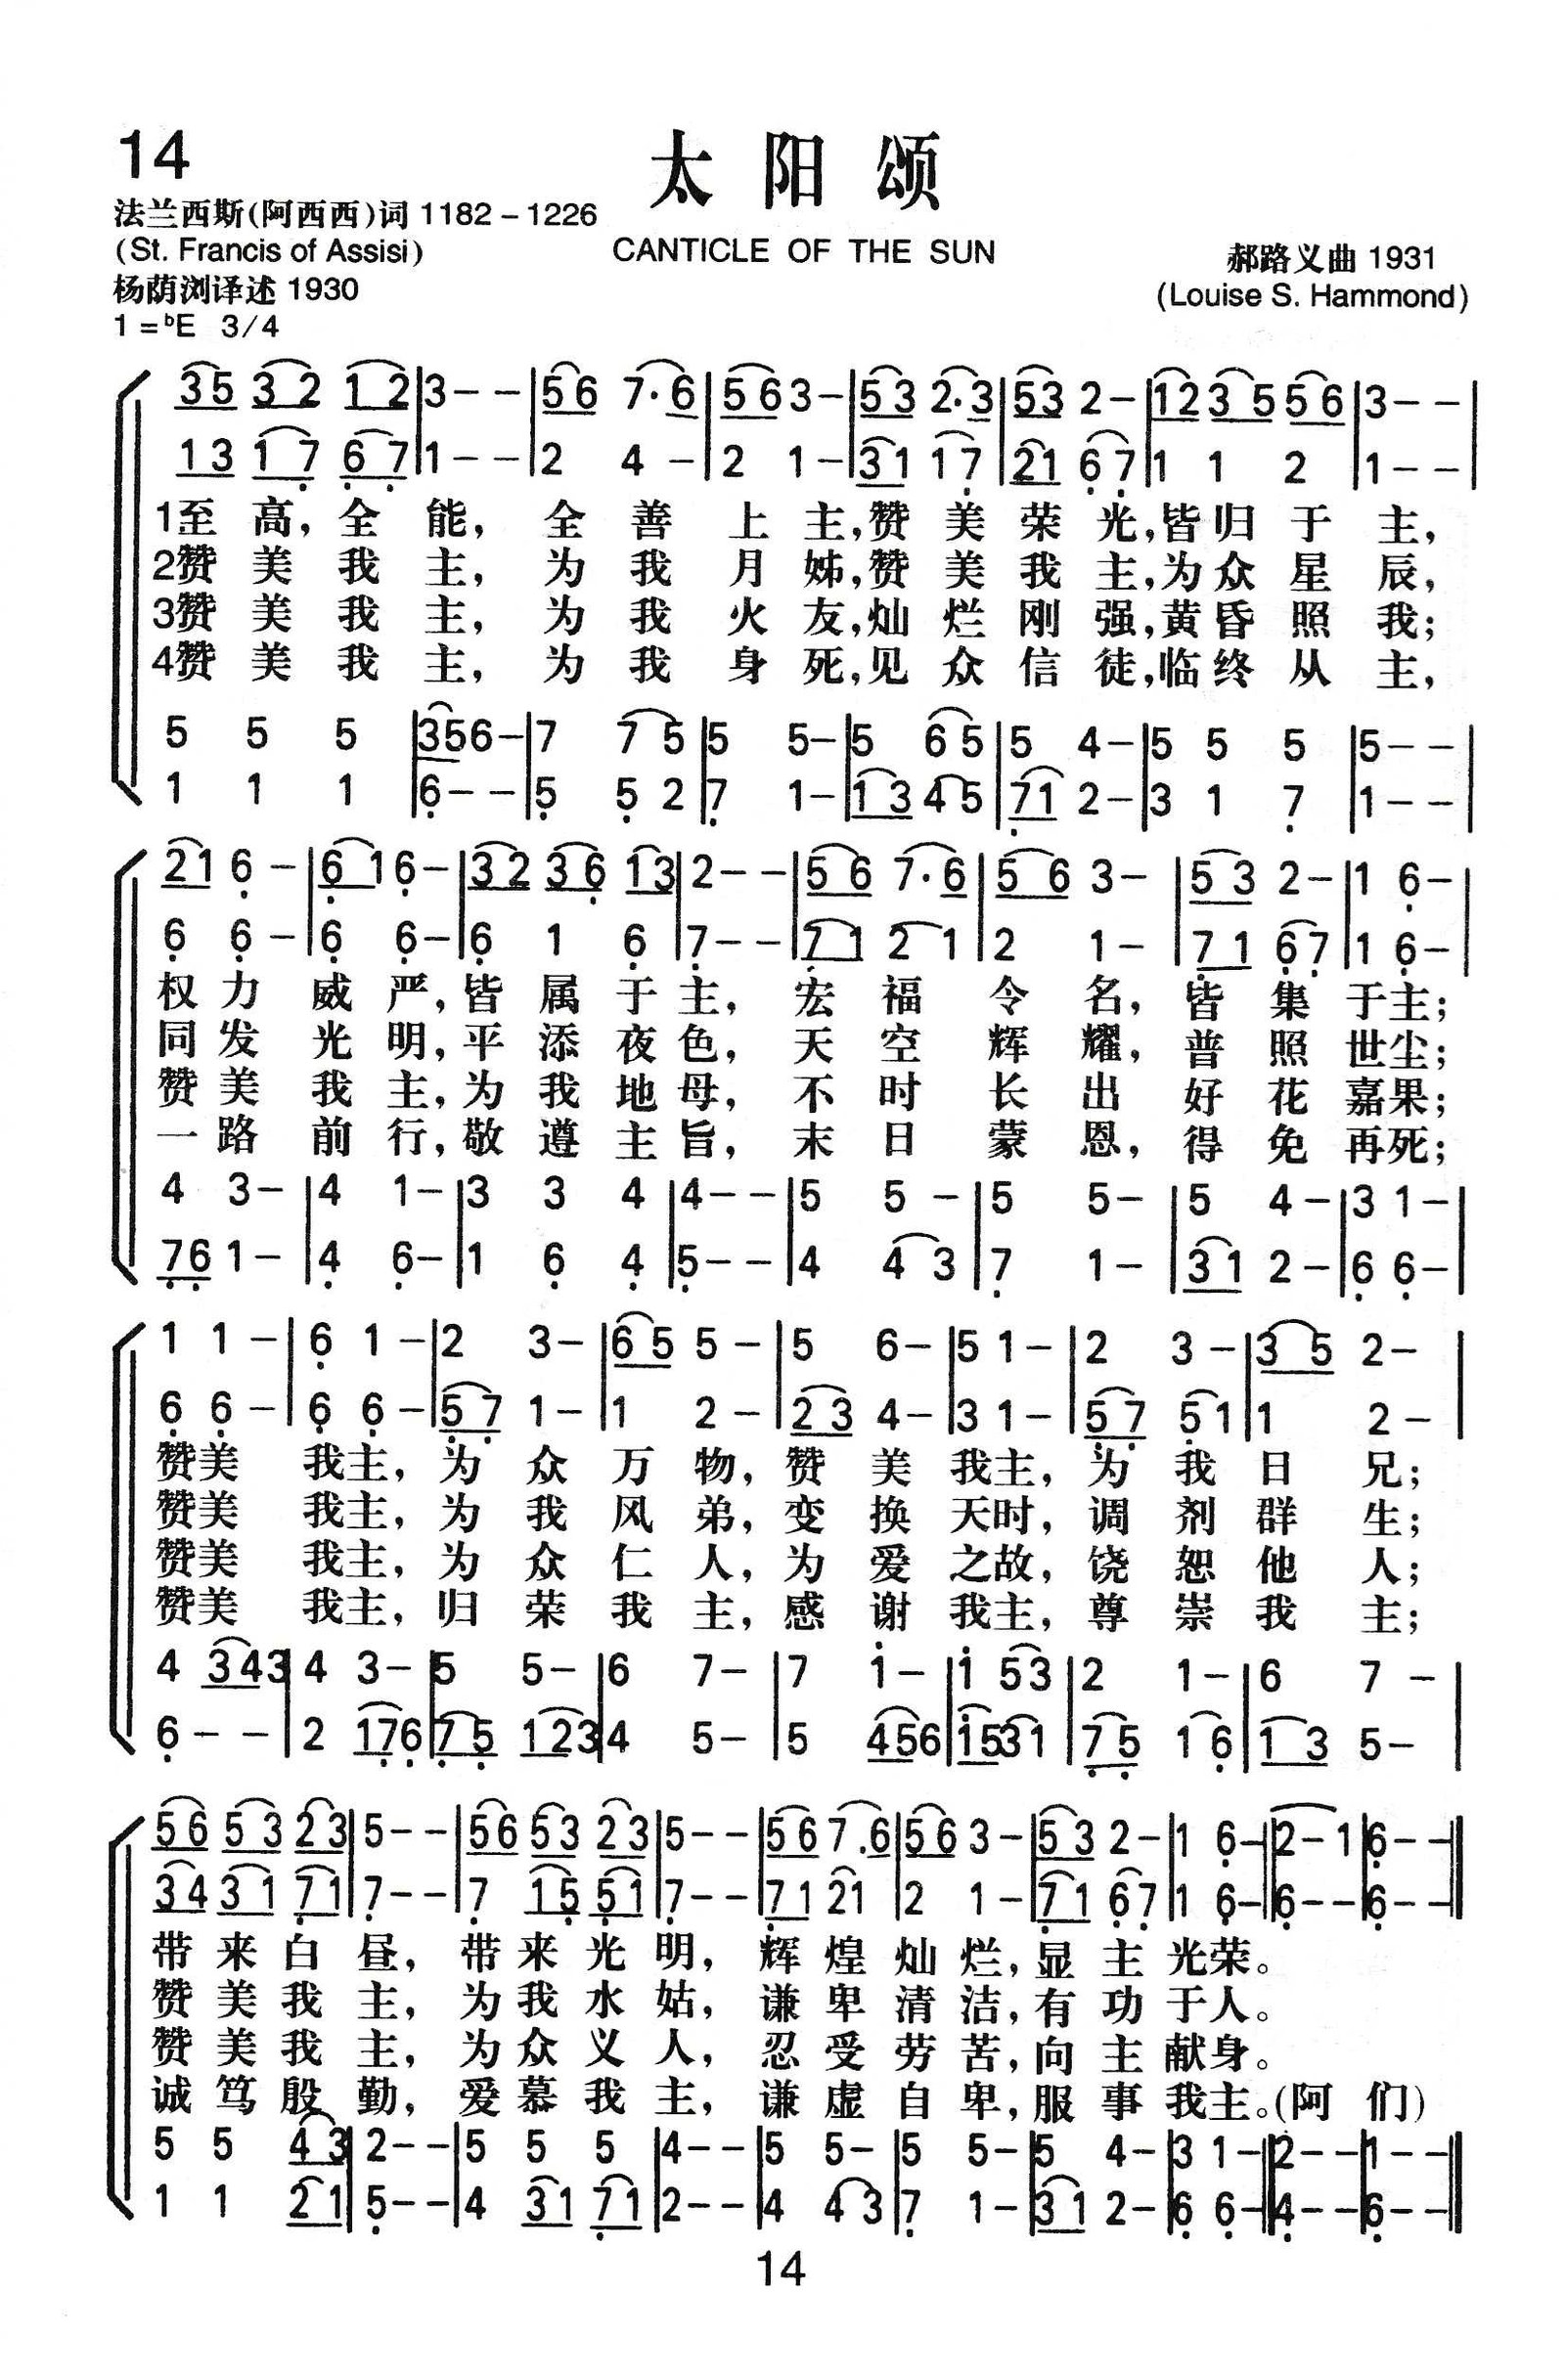 14
太阳颂
法兰西斯(阿西西)词 1182-1226
(St. Francis of Assisi)
CANTICLE OF THE SUN
郝路义曲 1931
杨荫浏译述 1930
(Louise S. Hammond)
1=♭E 3/4
1至高,全能,全善上主,赞美荣光,皆归于主,
2赞美我主,为我月姊,赞美我主,为众星辰,
3赞美我主,为我火友,灿烂刚强,黄昏照我;
4赞美我主,为我身死,见众信徒,临终从主,
权力威严,皆属于主,宏福令名,皆集于主;
同发光明,平添夜色,天空辉耀,普照世尘;
赞美我主,为我地母,不时长出好花嘉果;
一路前行,敬遵主旨,末日蒙恩,得免再死;
赞美我主,为众万物,赞美我主,为我日兄;
赞美我主,为我风弟,变换天时,调剂群生;
赞美我主,为众仁人,为爱之故,饶恕他人;
赞美我主,归荣我主,感谢我主,尊崇我主;
带来白昼,带来光明,辉煌灿烂,显主光荣。
赞美我主,为我水姑,谦卑清洁,有功于人。
赞美我主,为众义人,忍受劳苦,向主献身。
诚笃殷勤,爱慕我主,谦虚自卑,服事我主。(阿们)
14